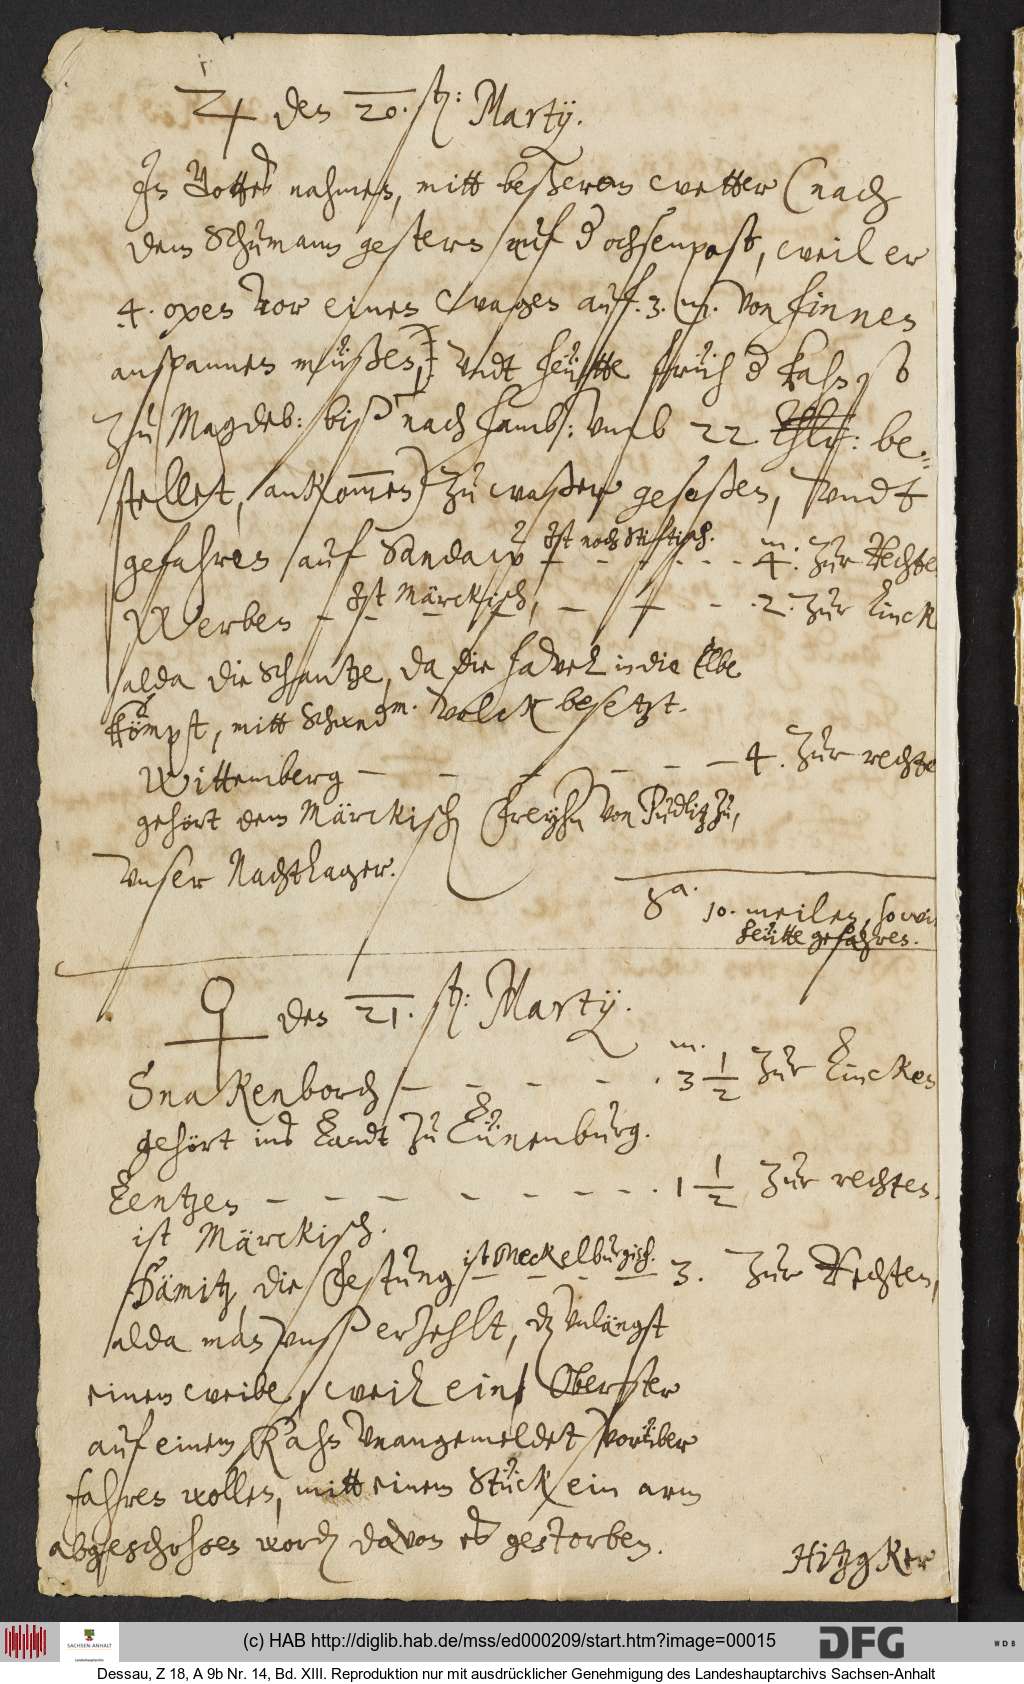 ♃ den 20. st: Martij.
In Gottes nahmen, mitt beßerem wetter (nach
dem Schumann gestern auf d ochsenpost, weil er
4. oxen vor einen wagen auf. 3. m. von hinnen
anspannen müßen, undt heütte früh d kahn so
zu Magdeb: biß nach hamb: umb 22 Thlr: be=
stellet, ankommen) zu waßer geseßen, undt
gefahren auf Sandaw ist noch Stiftisch. - - - m. 4. zur Rechte
Werben - ist Märckisch, - - - 2. zur Linck
alda die Schantze, da die havel in die Elbe
kömpt, mitt volck besetzt.
Wittemberg - - - - - - 4. zur rechte
gehört dem Märckisch freyhn von Pudlitz zu,
unser Nachtlager.
Sa. 10. meilen, so wir
heütte gefahren.
♀ den 21. st: Martij.
Snakenborch - - - - . m. 3 1/2 zur Lincken
gehört ins Landt zu Lünenburg.
Lentzen - - - - - - - . 1 1/2 zur rechten.
ist Märckisch.
Dämitz, die Festung ist Meckelburgisch. 3. zur Rechten,
alda man unß erzehlt, dz unlängst
einem weibe, weil ein Oberster
auf einem Kahn unangemeldet vorüber
fahren wollen, mitt einem Stück ein arm
abgeschoßen worden davon es gestorben.
Hitzgker
(c) HAB http://diglib.hab.de/mss/ed000209/start.htm?image=00015
SACHSEN-ANHALT
DFG
WDB
Dessau, Z 18, A 9b Nr. 14, Bd. XIII. Reproduktion nur mit ausdrücklicher Genehmigung des Landeshauptarchivs Sachsen-Anhalt